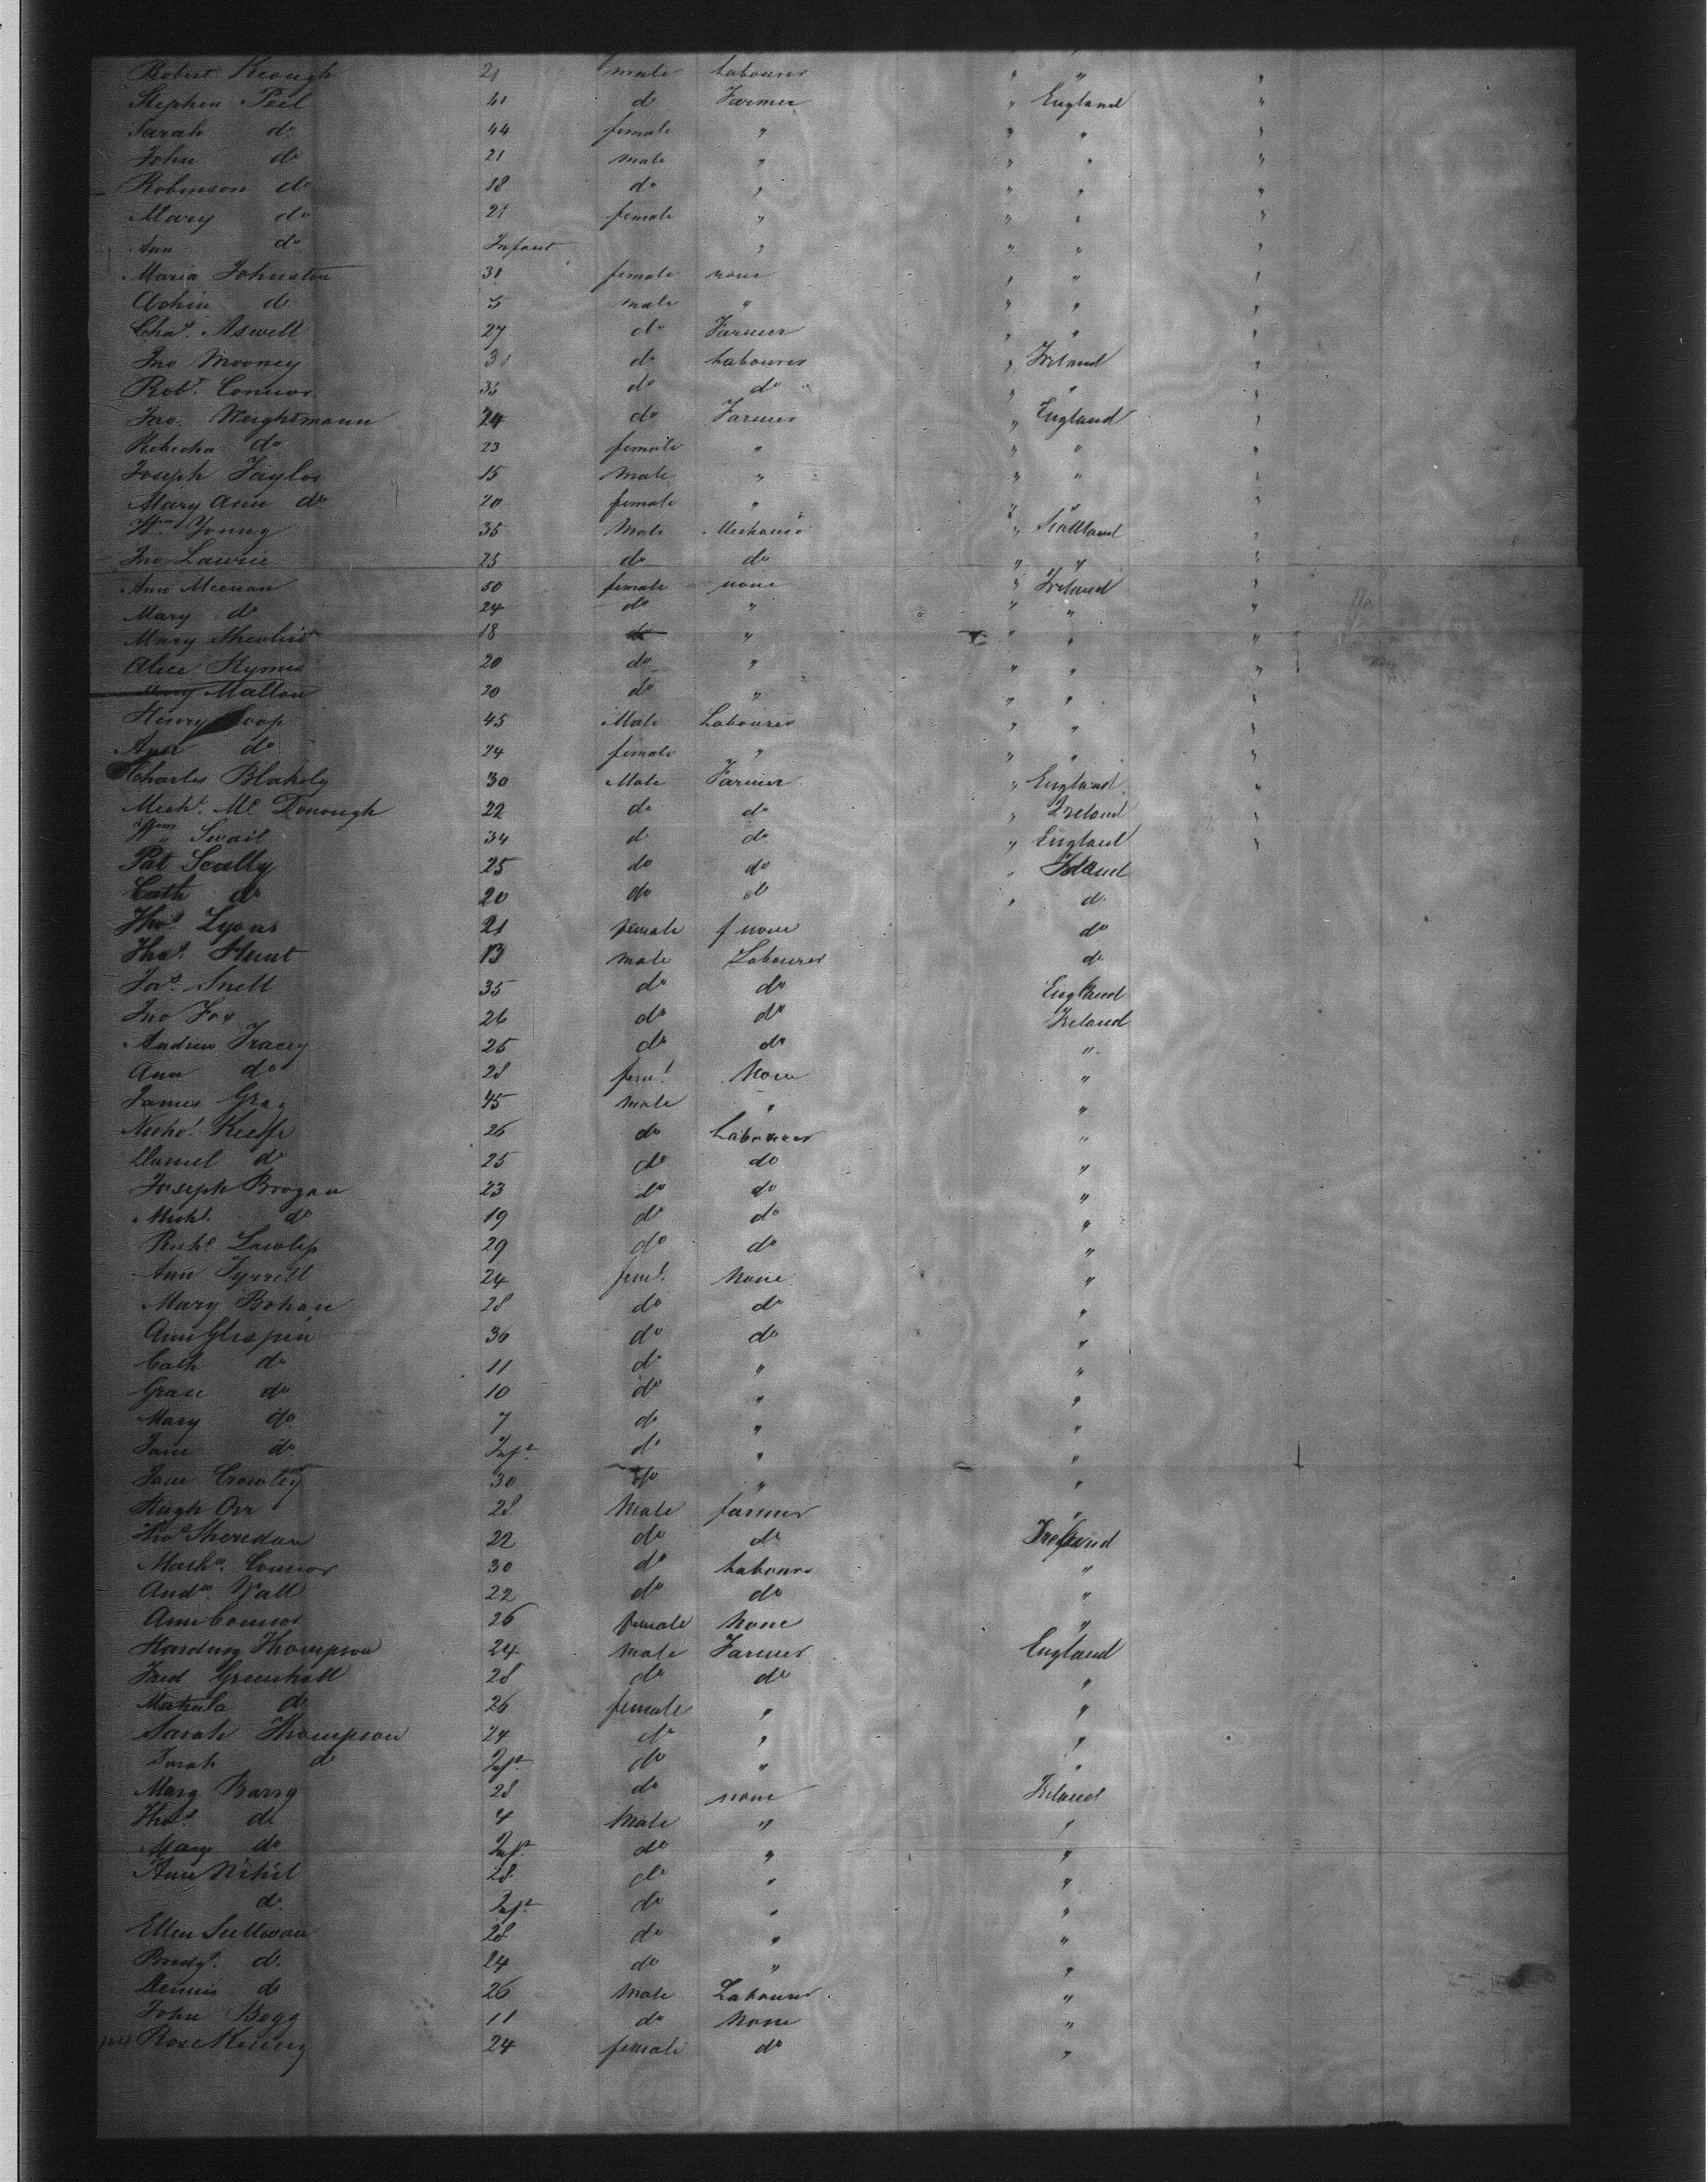 Robert Keough 21 male Labourer " " "
Stephen Peel 41 do Farmer " England "
Sarah do 44 female " " " "
John do 21 male " " " "
Robinson do 18 do " " " "
Mary do 21 female " " " "
Ann do Infant " " " "
Maria Johnston 31 female none " " "
do 5 male " " " "
Chas. Aswell 27 do Farmer " " "
Jno Mooney 31 do Labourer " Ireland "
Robt. Connor 35 do do " " "
Jno. Weightmann 24 do Farmer " England "
Rebecha do 23 female " " " "
Joseph Taylor 15 Male " " " "
Mary Ann do 20 female " " " "
Wm Young 35 Male Mechanic " Scottland "
Jno Lawrie 25 do do " " "
Ann Meenan 50 female none " Ireland "
Mary do 24 do " " " "
Mary 18 do " " " "
Alice 20 do " " " "
Mallon 20 do " " " "
Henry 45 Male Labourer " " "
Ann do 24 female " " " "
Charles Blakely 30 Male Farmer " England "
Michl. Mc Donough 22 do do " Ireland "
Wm Swail 34 do do " England "
Pat Scally 25 do do " Ireland
Cath do 20 do do " do
Thos. Lyons 21 female none do
Thos. Hunt 13 male Labourer do
Jas. Snell 35 do do England
Jno Fox 26 do do Ireland
Andrew Tracey 25 do do "
Ann do 28 feml. None "
James Gray 45 male " "
Nichol. Keeffe 26 do Labourer "
Daniel do 25 do do "
Joseph Brogan 23 do do "
Michl. do 19 do do "
Richd 29 do do "
Ann Tyrrell 24 feml. None "
Mary Bohan 28 do do "
Ann Glespin 36 do do "
Cath do 11 do " "
Grace do 10 do " "
Mary do 7 do " "
Jane do Inft. do " "
Jane Crowley 30 do " "
Hugh Orr 28 Male farmer "
Thos Sheridan 22 do do Ireland
Mathw. Connor 30 do Labourer "
Andw. Wall 22 do do "
Ann Connor 26 female None "
Harding Thompson 24 Male Farmer England
Fred Greenhall 28 do do "
do 26 female " "
Sarah Thompson 24 do " "
Sarah do Inft. do " "
Mary Barry 28 do none Ireland
Thos. do 4 Male " "
Mary do Inft. do " "
Ann Nihil 28 do " "
do Inft. do " "
Ellen Sullivan 28 do " "
Bridgt. do 24 do " "
Dennis do 26 Male Labourer "
John Begg 11 do None "
Rose 24 female do "